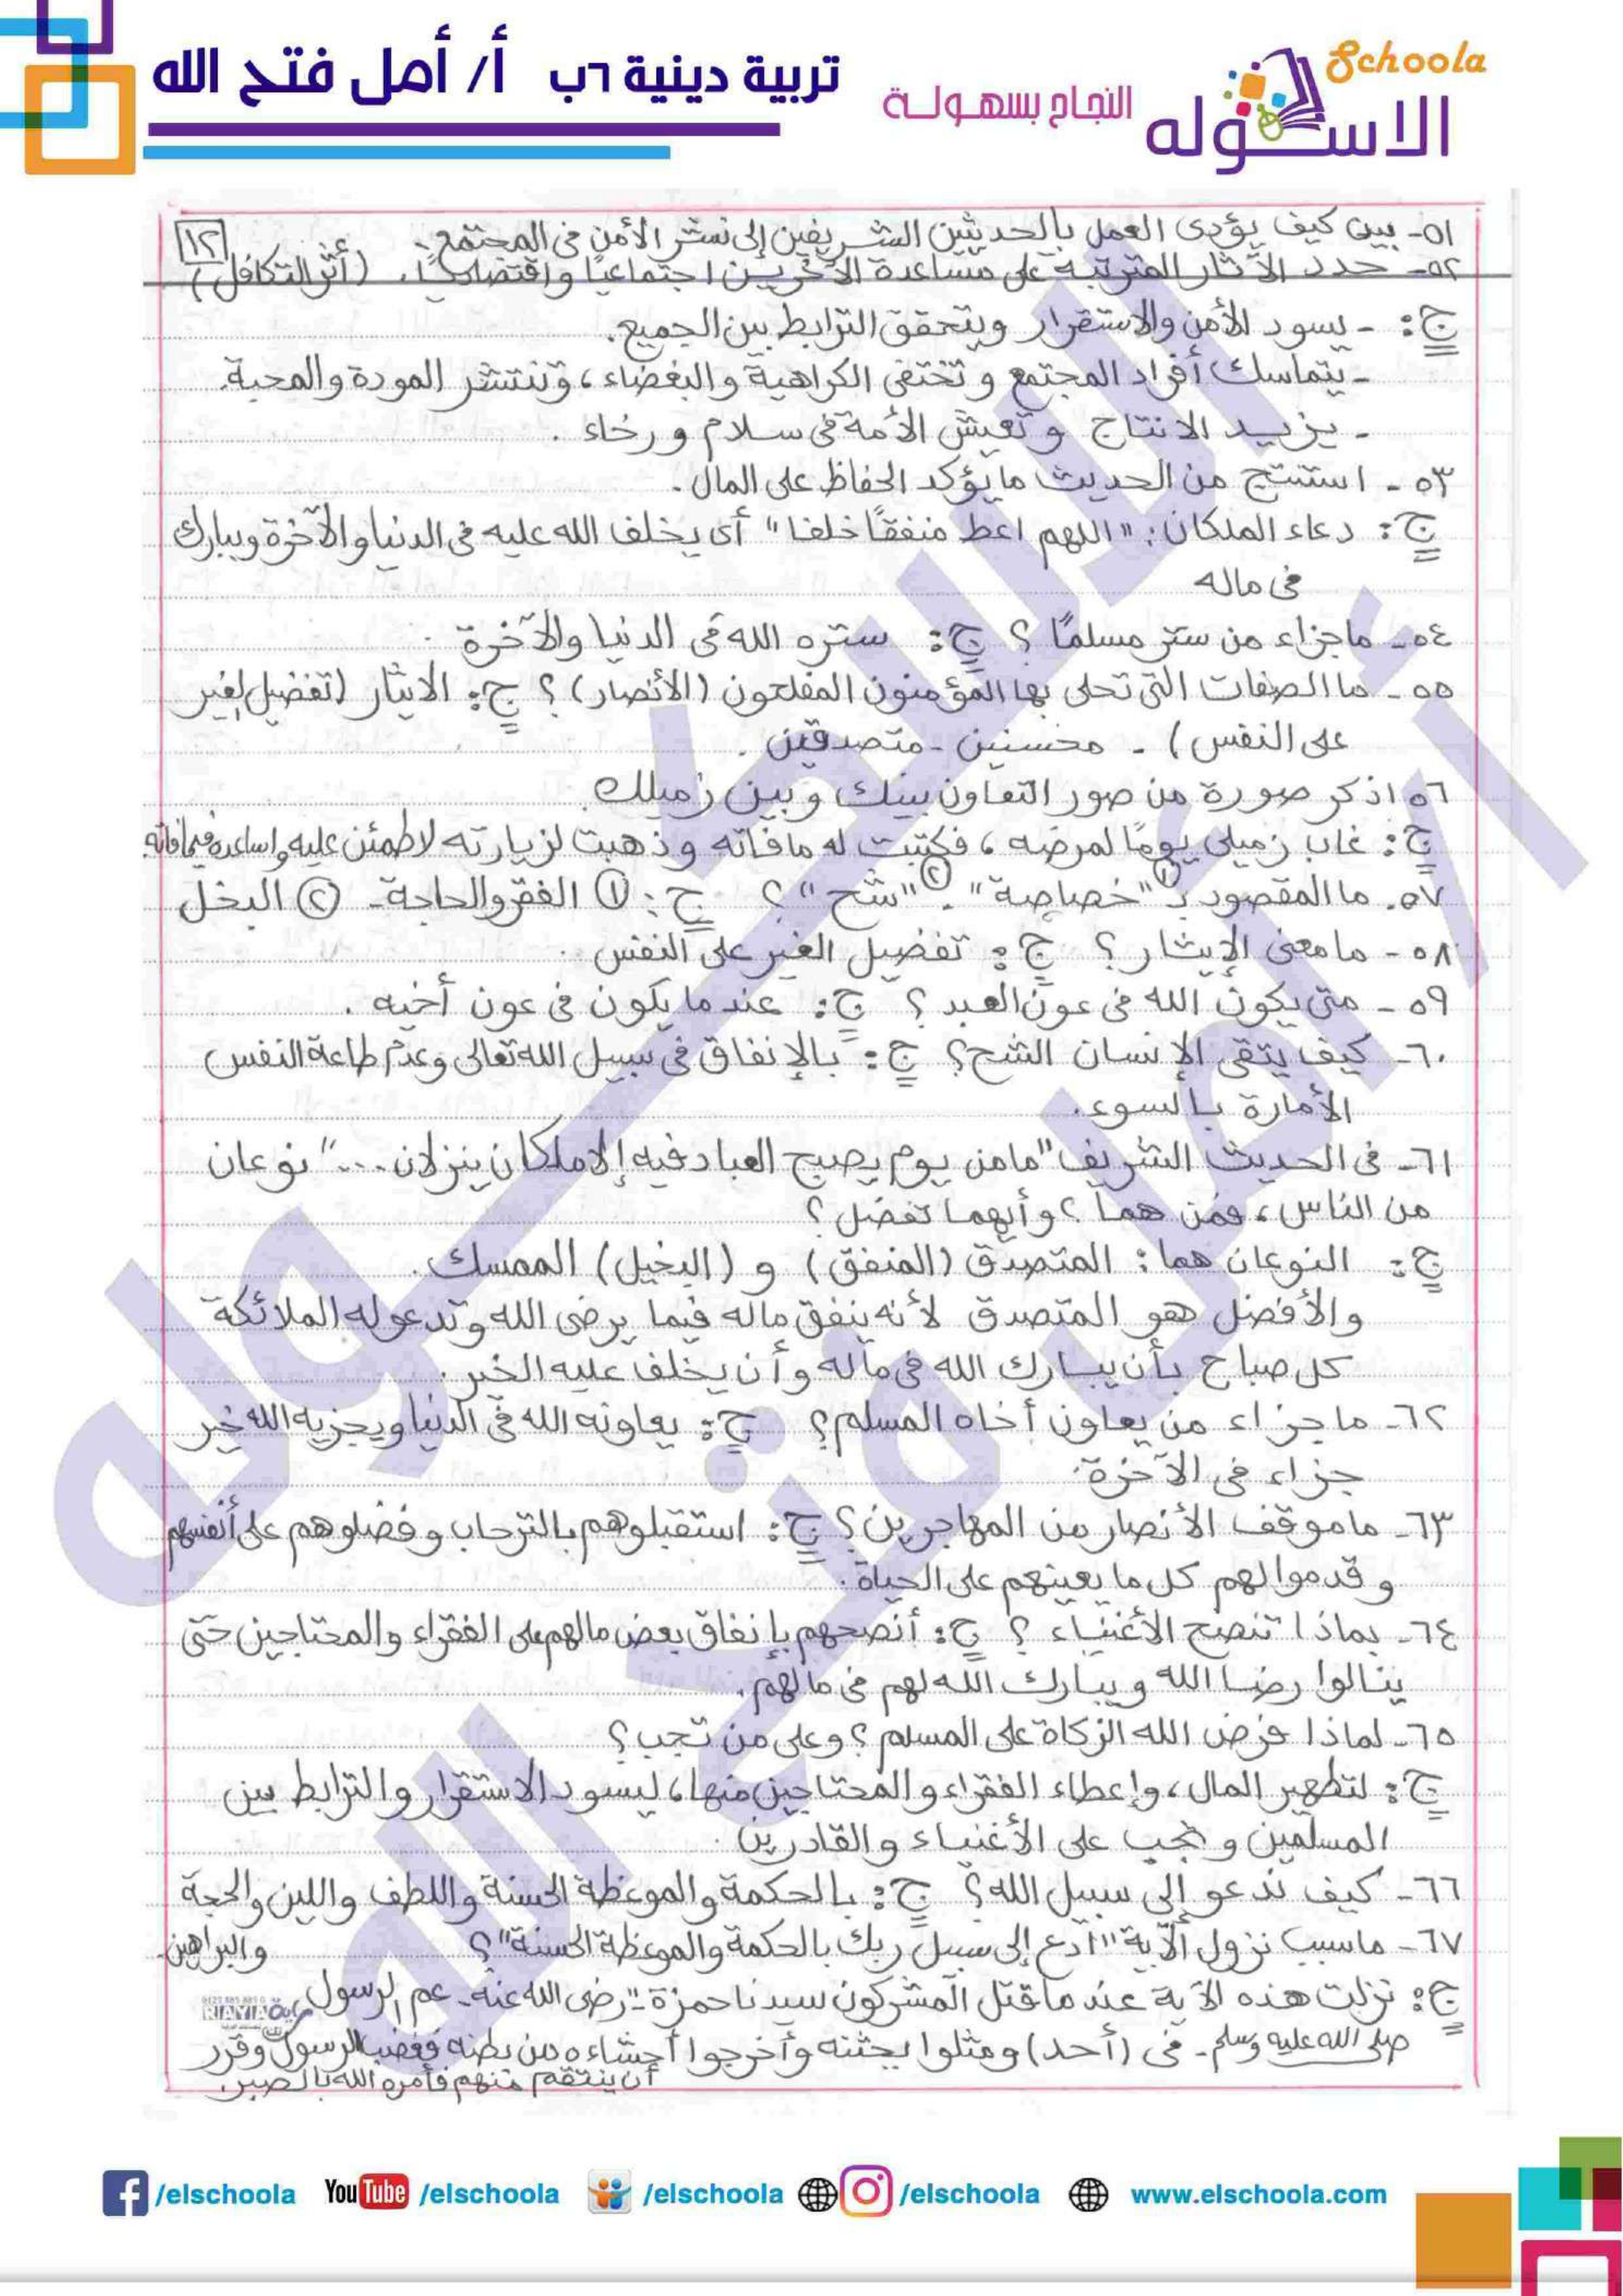 تربية دينية ٦ب أ/ أمل فتح الله
Schoola
الاسكوله
النجاح بسهولة
١٢
٥١- بين كيف يؤدى العمل بالحديثين الشريفين إلى نشر الأمن فى المجتمع.
٥٢- حدد الآثار المترتبة على مساعدة الآخرين اجتماعيًا واقتصاديًا. (أثر التكافل)
ج: - يسود الأمن والاستقرار ويتحقق الترابط بين الجميع.
- يتماسك أفراد المجتمع وتختفى الكراهية والبغضاء، وتنتشر المودة والمحبة.
- يزيد الانتاج وتعيش الأمة فى سلام ورخاء.
٥٣- استنتج من الحديث ما يؤكد الحفاظ على المال.
ج: دعاء الملكان: "اللهم اعط منفقًا خلفا" أى يخلف الله عليه فى الدنيا والآخرة ويبارك
فى ماله
٥٤- ماجزاء من ستر مسلمًا؟ ج: ستره الله فى الدنيا والآخرة.
٥٥- ما الصفات التى تحلى بها المؤمنون المفلحون (الأنصار)؟ ج: الايثار (تفضيل الغير
على النفس) - محسنين - متصدقين.
٥٦ اذكر صورة من صور التعاون بينك وبين زميلك.
ج: غاب زميلى يومًا لمرضه، فكتبت له مافاته وذهبت لزيارته لاطمئن عليه واساعده فيما فاته
٥٧. ما المقصود بـ ① "خصاصة" . ② "شح"؟ ج: ① الفقر والحاجة- ② البخل
٥٨- مامعنى الإيثار؟ ج: تفضيل الغير على النفس.
٥٩- متى يكون الله فى عون العبد؟ ج: عندما يكون فى عون أخيه.
٦٠- كيف يتقى الإنسان الشح؟ ج: بالإنفاق فى سبيل الله تعالى وعدم طاعة النفس
الأمارة بالسوء.
٦١- فى الحديث الشريف "مامن يوم يصبح العباد فيه إلا ملكان ينزلان..." نوعان
من الناس، فمن هما؟ وأيهما تفضل؟
ج: النوعان هما: المتصدق (المنفق) و (البخيل) الممسك.
والأفضل هو المتصدق لأنه ينفق ماله فيما يرضى الله وتدعوله الملائكة
كل صباح بأن يبارك الله فى ماله وأن يخلف عليه الخير.
٦٢- ماجزاء من يعاون أخاه المسلم؟ ج: يعاونه الله فى الدنيا ويجزيه الله خير
جزاء فى الآخرة.
٦٣- ماموقف الأنصار من المهاجرين؟ ج: استقبلوهم بالترحاب وفضلوهم على أنفسهم
وقدموا لهم كل ما يعينهم على الحياة.
٦٤- بماذا تنصح الأغنياء؟ ج: أنصحهم بإنفاق بعض مالهم على الفقراء والمحتاجين حتى
ينالوا رضا الله ويبارك الله لهم فى مالهم.
٦٥- لماذا فرض الله الزكاة على المسلم؟ وعلى من تجب؟
ج: لتطهير المال، وإعطاء الفقراء والمحتاجين منها، ليسود الاستقرار والترابط بين
المسلمين وتجب على الأغنياء والقادرين.
٦٦- كيف ندعو إلى سبيل الله؟ ج: بالحكمة والموعظة الحسنة واللطف واللين والحجة
والبراهين.
٦٧- ماسبب نزول الآية "ادع إلى سبيل ربك بالحكمة والموعظة الحسنة"؟
ج: نزلت هذه الآية عندما قتل المشركون سيدنا حمزة -رضى الله عنه- عم الرسول
صلى الله عليه وسلم- فى (أحد) ومثلوا بجثته وأخرجوا أحشاءه من بطنه فغضب الرسول وقرر
أن ينتقم منهم فأمره الله بالصبر.
الاسكوله
أ/ أمل فتح الله
/elschoola YouTube /elschoola /elschoola /elschoola www.elschoola.com